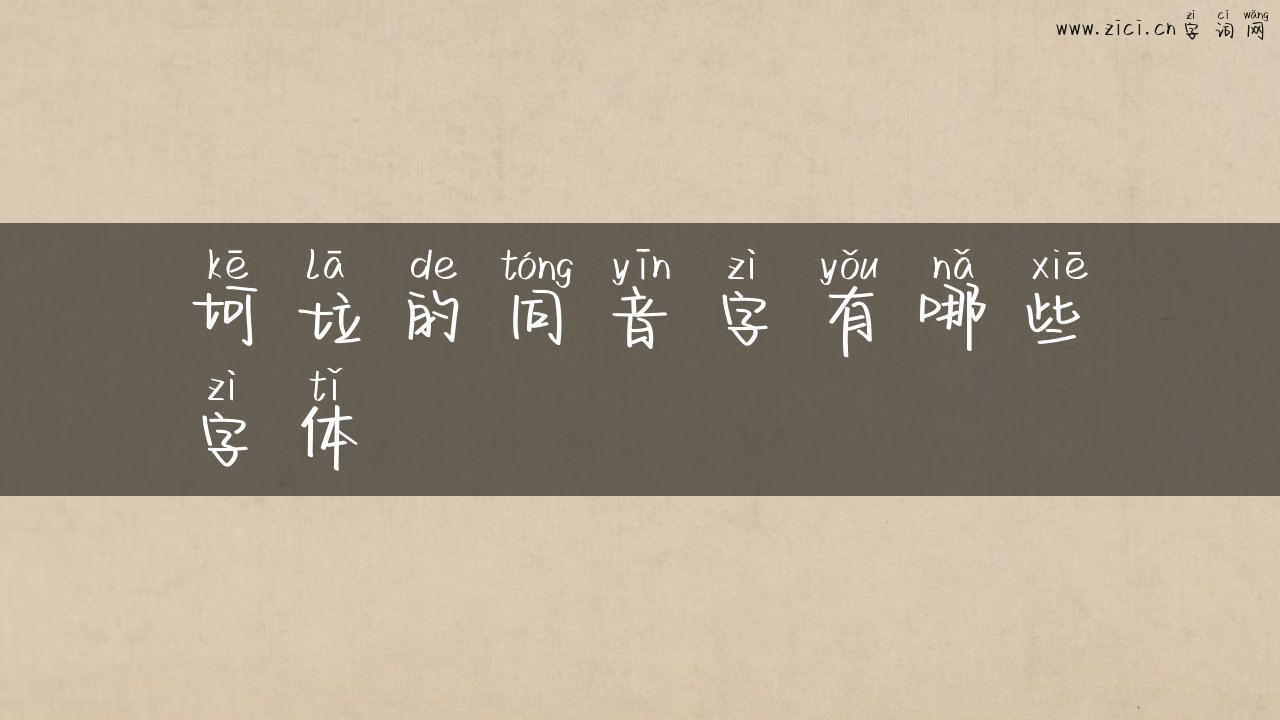 zì cí wǎng
www.zici.cn 字 词 网
kē lā de tóng yīn zì yǒu nǎ xiē
坷 垃 的 同 音 字 有 哪 些
zì tǐ
字 体